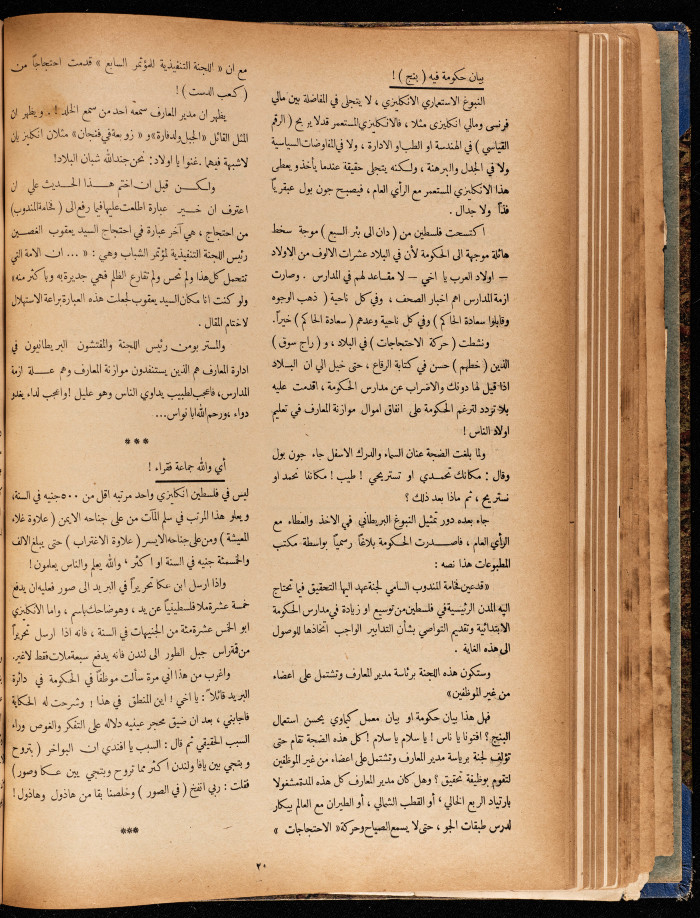 بيان حكومة فيه ( بنج ) !
النبوغ الاستعماري الانكليزي ، لا يتجلى في المفاضلة بين مالي
فرنسي ومالي انكليزي مثلا ، فالانكليزي المستعمر قد لا يربح ( الرقم
القياسي ) في الهندسة او الطب او الادارة ، ولا في المفاوضات السياسية
ولا في الجدل والبرهنة ، ولكنه يتجلى حقيقة عندما يأخذ ويعطى
هذا الانكليزي المستعمر مع الرأي العام ، فيصبح جون بول عبقرياً
فذاً ولا جدال .
اكتسحت فلسطين من ( دان الى بئر السبع ) موجة سخط
هائلة موجهة الى الحكومة لأن في البلاد عشرات الالوف من الاولاد
— اولاد العرب يا اخي — لا مقاعد لهم في المدارس . وصارت
ازمة المدارس اهم اخبار الصحف ، وفي كل ناحية ( ذهب الوجوه
وقابلوا سعادة الحاكم ) وفي كل ناحية وعدهم ( سعادة الحاكم ) خيراً.
ونشطت ( حركة الاحتجاجات ) في البلاد ، و ( راج سوق )
الذين ( خطهم ) حسن في كتابة الرقاع ، حتى خيل الي ان البلاد
اذا قيل لها دونك والاضراب عن مدارس الحكومة ، اقدمت عليه
بلا تردد لترغم الحكومة على انفاق اموال موازنة المعارف في تعليم
اولاد الناس !
ولما بلغت الضجة عنان السماء والدرك الاسفل جاء جون بول
وقال : مكانك تحمدي او تستريحي ! طيب ! مكاننا نحمد او
نستريح ، ثم ماذا بعد ذلك ؟
جاء بعده دور تمثيل النبوغ البريطاني في الاخذ والعطاء مع
الرأي العام ، فاصدرت الحكومة بلاغاً رسمياً بواسطة مكتب
المطبوعات هذا نصه :
«قد عين فخامة المندوب السامي لجنة عهد اليها التحقيق فيما تحتاج
اليه المدن الرئيسية في فلسطين من توسيع او زيادة في مدارس الحكومة
الابتدائية وتقديم التواصي بشأن التدابير الواجب اتخاذها للوصول
الى هذه الغاية .
وستكون هذه اللجنة برئاسة مدير المعارف وتشتمل على اعضاء
من غير الموظفين»
فهل هذا بيان حكومة او بيان معمل كيماوي يحسن استعمال
البنج ؟ افتونا يا ناس ! يا سلام يا سلام ! كل هذه الضجة تقام حتى
تؤلف لجنة برياسة مدير المعارف وتشتمل على اعضاء من غير الموظفين
لتقوم بوظيفة تحقيق ؟ وهل كان مدير المعارف كل هذه المدة مشغولا
بارتياد الربع الخالي ، أو القطب الشمالي ، أو الطيران مع العالم بيكار
لدرس طبقات الجو ، حتى لا يسمع الصياح وحركة « الاحتجاجات »
مع ان « اللجنة التنفيذية للمؤتمر السابع » قدمت احتجاجاً من
( كعب الدست ) !
يظهر ان مدير المعارف سمعه احد من سمع الخلد ! . ويظهر ان
المثل القائل «الجبل ولد فارة» و « زوبعة في فنجان » مثلان انكليزيان
لا شبهة فيهما . غنوا يا اولاد : نحن جند الله شبان البلاد!
ولكن قبل ان اختم هذا الحديث علي ان
اعترف ان خير عبارة اطلعت عليها فيما رفع الى ( فخامة المندوب)
من احتجاج ، هي آخر عبارة في احتجاج السيد يعقوب الغصين
رئيس اللجنة التنفيذية لمؤتمر الشباب وهي : « ... ان الامة التي
تتحمل كل هذا ولم تحس ولم تقارع الظلم فهي جديرة به وبأكثر منه»
ولو كنت انا مكان السيد يعقوب لجعلت هذه العبارة براعة الاستهلال
لا ختام المقال .
والمستر بومن رئيس اللجنة والمفتشون البريطانيون في
ادارة المعارف هم الذين يستنفدون موازنة المعارف وهم علة ازمة
المدارس، فاعجب لطبيب يداوي الناس وهو عليل ! واعجب لداء يغدو
دواء ، ورحم الله ابا نواس...
***
أي والله جماعة فقراء !
ليس في فلسطين انكليزي واحد مرتبه اقل من ٥٠٠ جنيه في السنة،
ويعلو هذا المرتب في سلم المآت من على جناحه الايمن ( علاوة غلاء
المعيشة ) ومن على جناحه الايسر ( علاوة الاغتراب ) حتى يبلغ الالف
والخمسمئة جنيه في السنة او اكثر ، والله يعلم والناس يعلمون !
واذا ارسل ابن عكا تحريراً في البريد الى صور فعليه ان يدفع
خمسة عشرة ملا فلسطينياً عن يد ، وهو ضاحك باسم ، واما الانكليزي
ابو الخمس عشرة مئة من الجنيهات في السنة ، فانه اذا ارسل تحريراً
من قمة راس جبل الطور الى لندن فانه يدفع سبعة ملات فقط لا غير.
واغرب من هذا اني مرة سألت موظفاً في الحكومة في دائرة
البريد قائلاً : يا اخي ! اين المنطق في هذا ! وشرحت له الحكاية
فاجابني ، بعد ان ضيق محجر عينيه دلاله على التفكر والغوص وراء
السبب الحقيقي ثم قال : السبب يا افندي ان البواخر ( بتروح
وبتجي بين يافا ولندن اكثر مما تروح وبتجي بين عكا وصور)
فقلت : ربي انفخ ( في الصور ) وخلصنا بقا من هاذول وهاذول !
***
٢٠